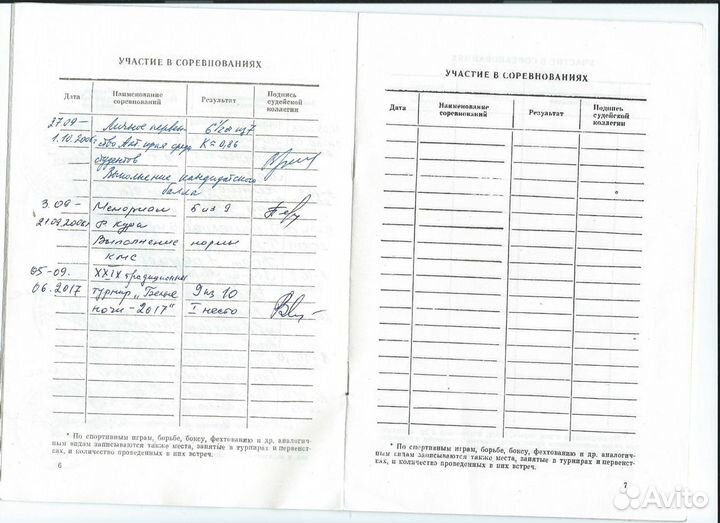 УЧАСТИЕ В СОРЕВНОВАНИЯХ
Дата Наименование соревнований Результат Подпись судейской коллегии
27.09- Личное первен
1.10.2006г ство среди
студентов
Выполнение кандидатского
балла
3.09- Мемориал 6 из 9
21.09.2006г Р
Выполнение нормы
кмс
05-09. XXIX традиционный
06.2017 турнир „Белые 9 из 10
ночи-2017" I место
* По спортивным играм, борьбе, боксу, фехтованию и др. аналогич-
ным видам записываются также места, занятые в турнирах и первенст-
вах, и количество проведенных в них встреч.
6
УЧАСТИЕ В СОРЕВНОВАНИЯХ
Дата Наименование соревнований Результат Подпись судейской коллегии
* По спортивным играм, борьбе, боксу, фехтованию и др. аналогич-
ным видам записываются также места, занятые в турнирах и первенст-
вах, и количество проведенных в них встреч.
7
Avito